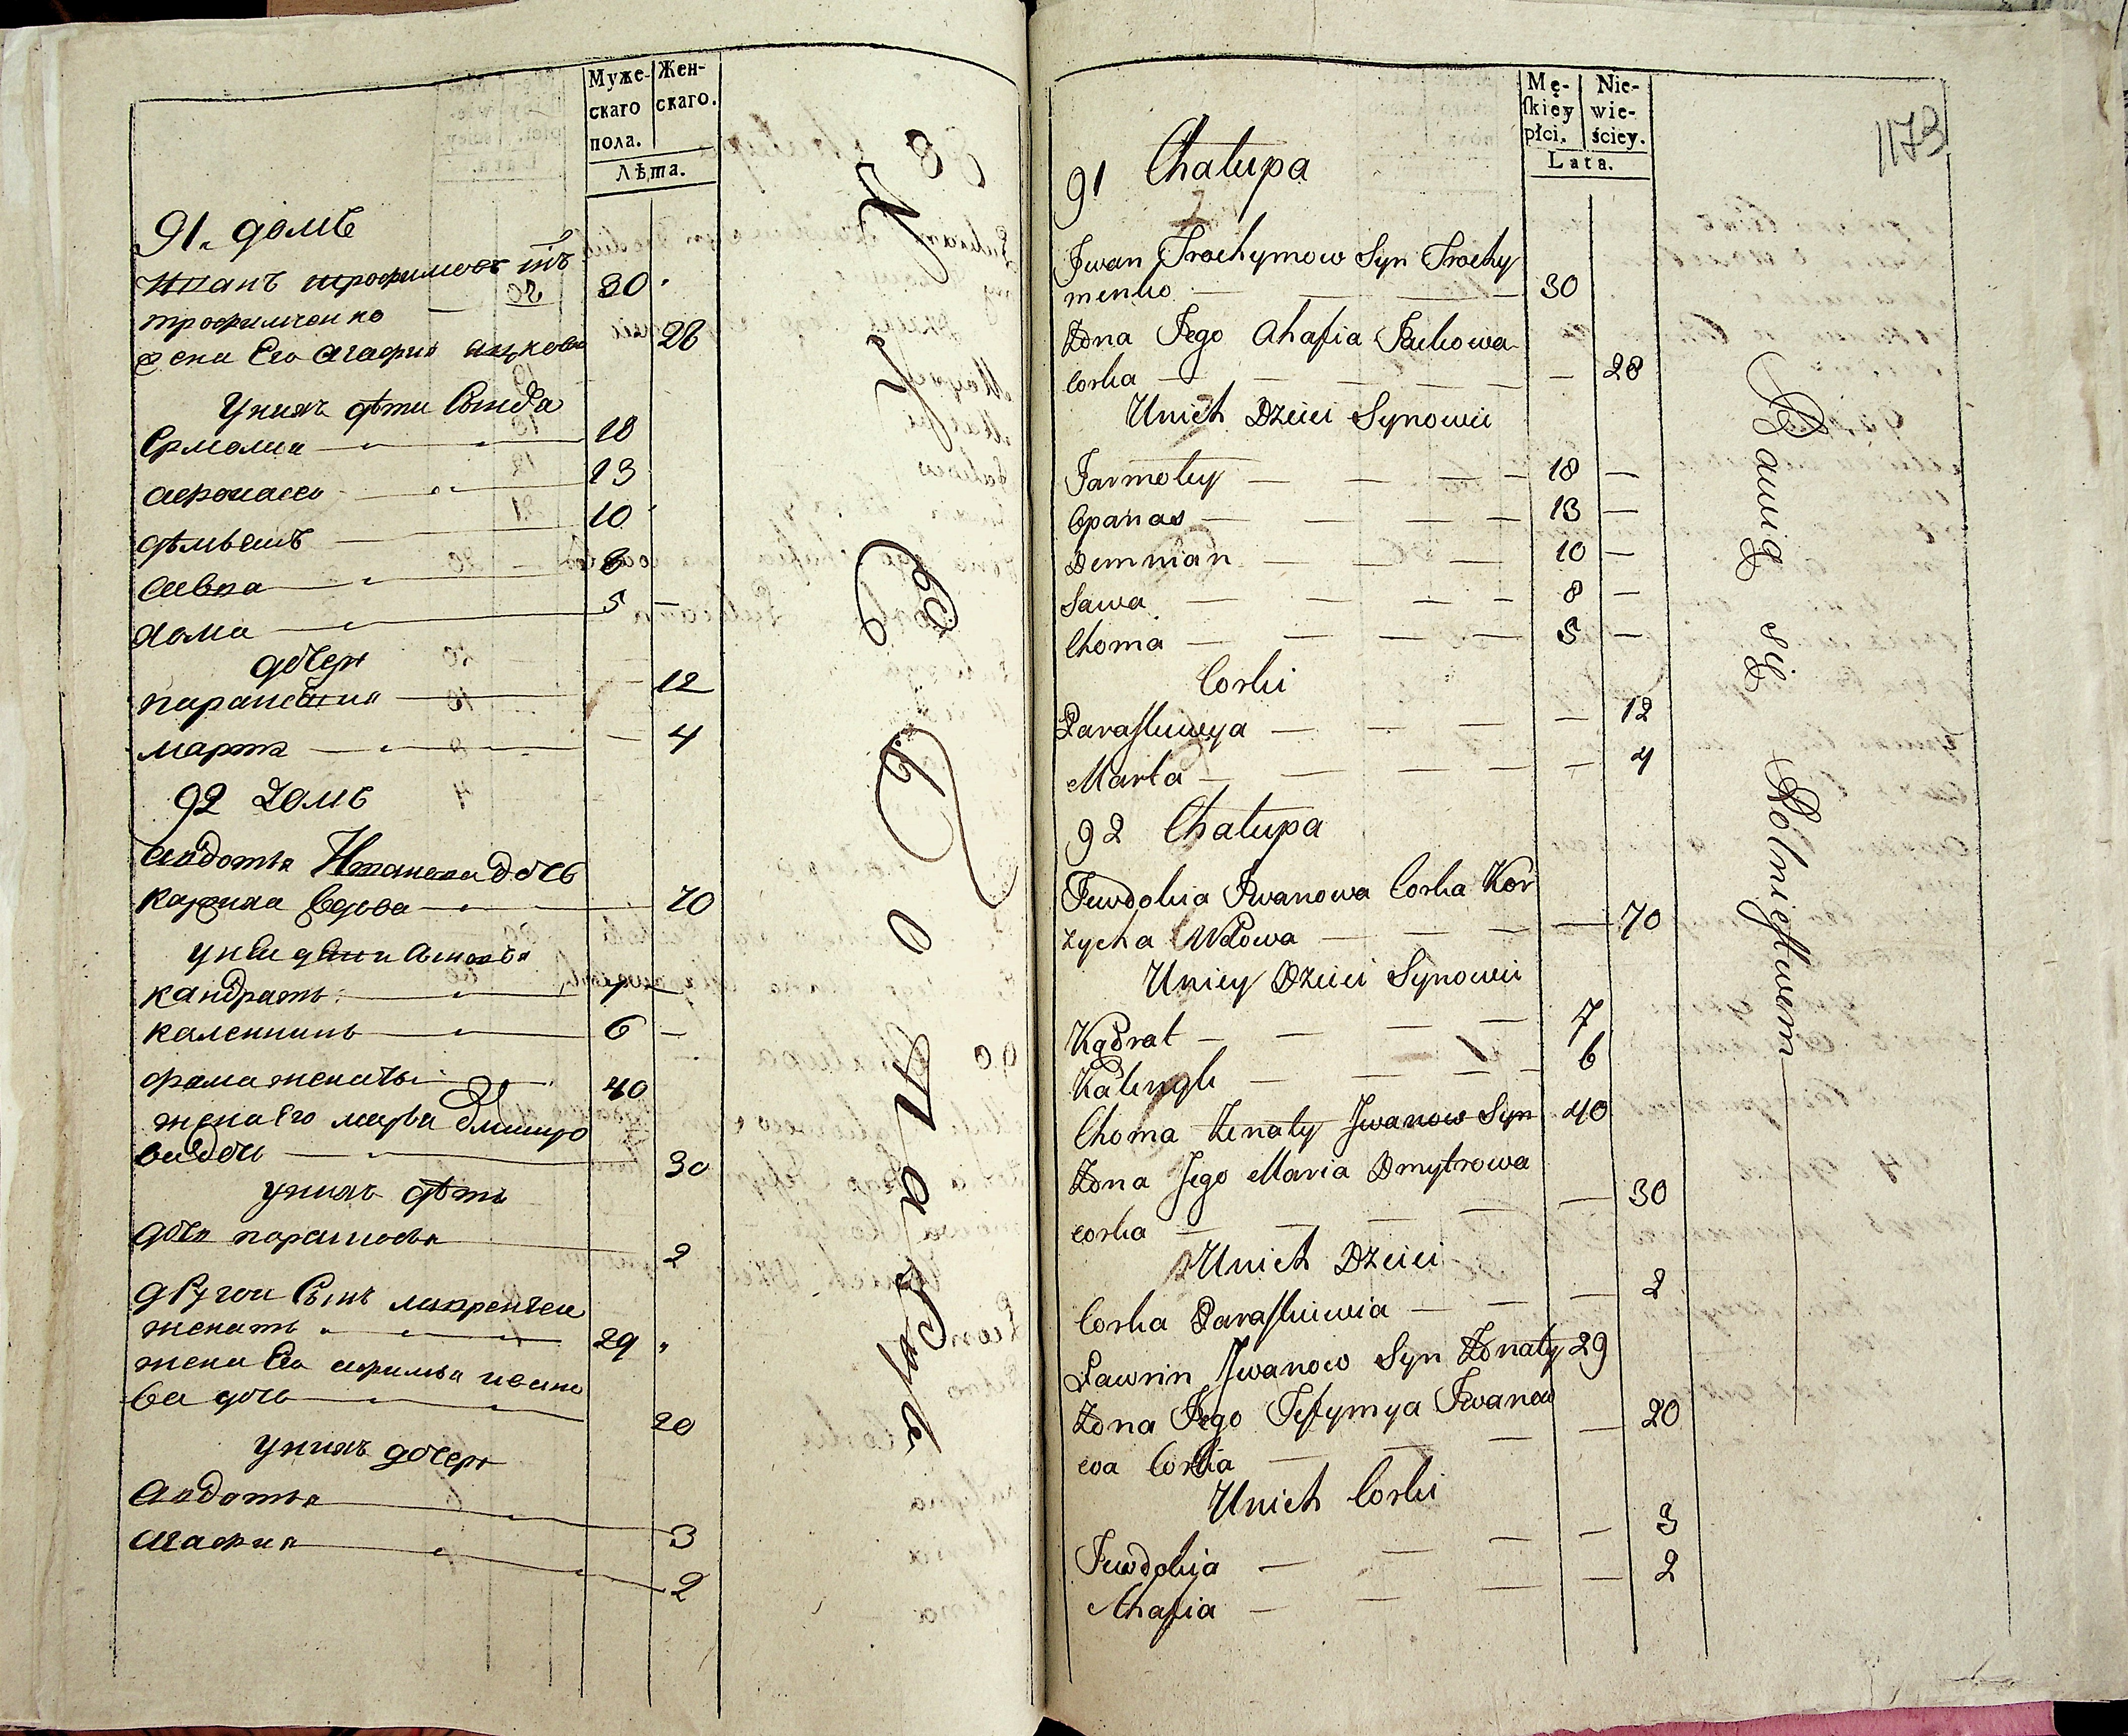 Муже-
скаго
пола.
Жен-
скаго.
Лѣта.
91. домъ
Иванъ трофимовъ
трофимченко 30
жена Его агафия яцкова 28
Уних дѣти Сынова
Ермолиа 18
афонасеи 13
дѣмьянъ 10
савка 8
хома 5
дочери
парасковия 12
марта 4
92 домъ
авдотья Иванова дочь
вдова 70
унеи дети
кандратъ 7
каленникъ 6
фома женатъ 40
жена Его марья дмитро
ва дочь 30
уних дѣти
дочь парасковья 2
другои Сынъ лаврентеи
женатъ 29
жена Его афимья ивано
ва дочь 20
уних дочери
авдотья 3
агафия 2
Mę-
skiéy
płci.
Nie-
wie-
ściey.
Lata.
1173
91 Chałupa
Jwan Trochymow Syn Trochy
menko 30
Żona Jego Ahafia Jackowa
Corka 28
Unich Dzieci Synowie
Jarmoły 18
Opanas 13
Demnian 10
Sawa 8
Choma 5
Corki
Paraskiweya 12
Marta 4
92 Chałupa
Juwdokia Jwanowa Corka Kor
zycha Wdowa 70
Uniey Dzieci Synowie
Kądrat 7
Kalenyk 6
Choma Żenaty Jwanow Syn 40
Żona Jego Maria Dmytrowa
corka 30
Unich Dzieci
Corka Paraskiwia 2
Ławrin Jwanow Syn Żonaty 29
Żona Jego Jefymya Jwanow
wa Corka 20
Unich Corki
Juwdokija 3
Ahafia 2
Bawią się Rolniestwem